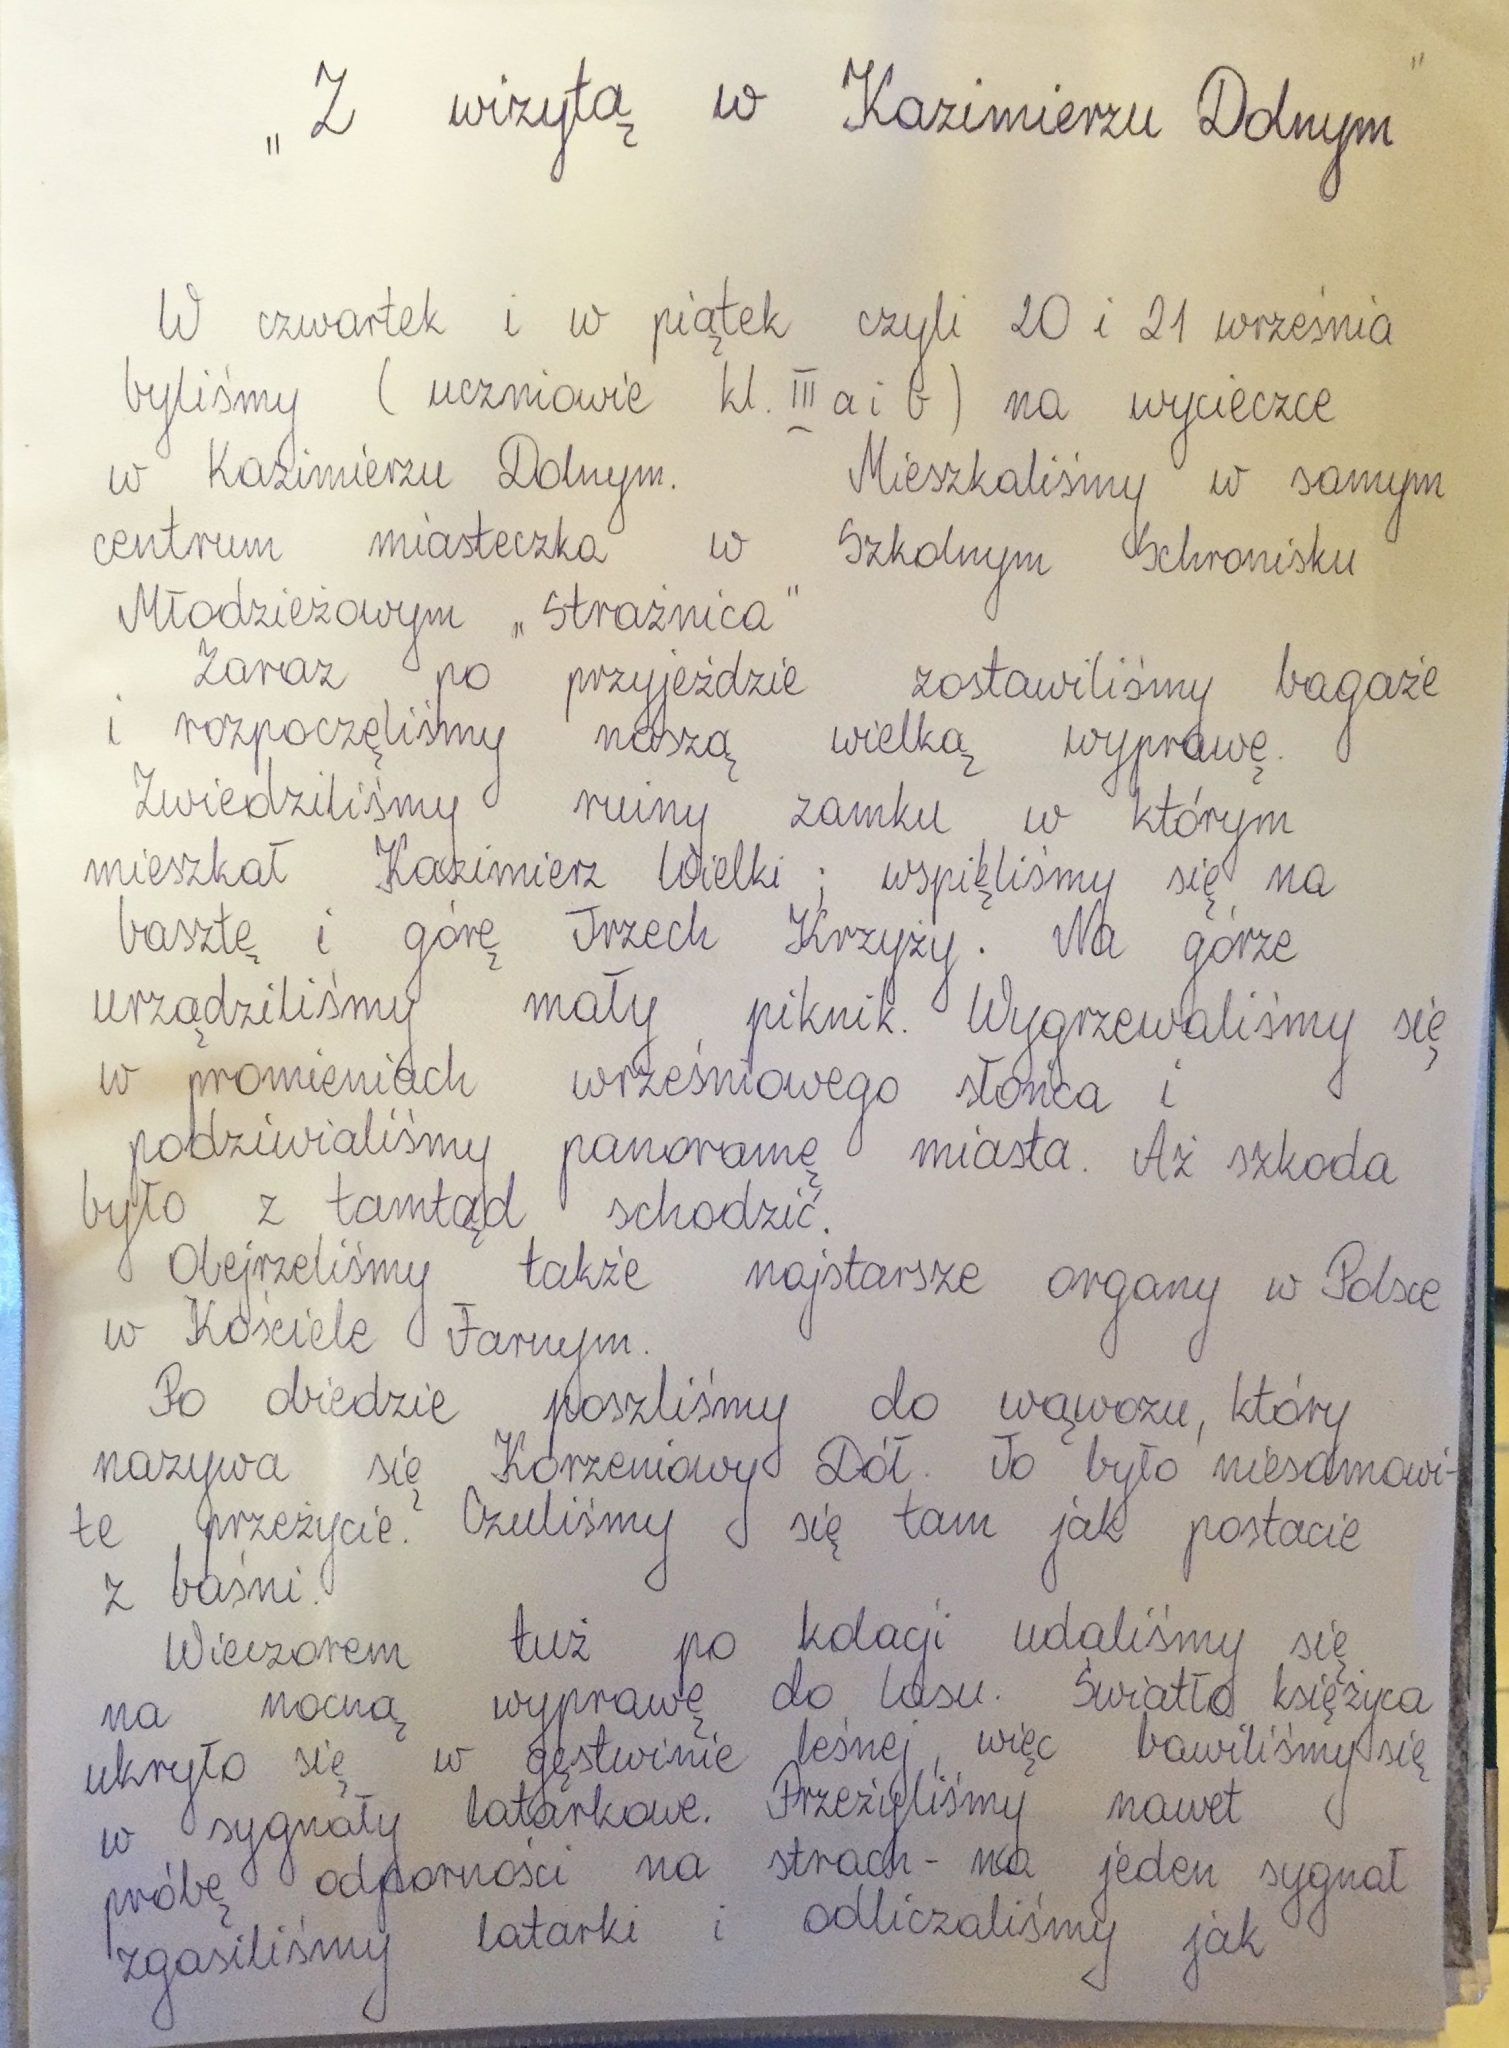 „Z wizytą w Kazimierzu Dolnym"
W czwartek i w piątek czyli 20 i 21 września
byliśmy (uczniowie kl. III a i b) na wycieczce
w Kazimierzu Dolnym. Mieszkaliśmy w samym
centrum miasteczka w Szkolnym Schronisku
Młodzieżowym „Strażnica"
Zaraz po przyjeździe zostawiliśmy bagaże
i rozpoczęliśmy naszą wielką wyprawę.
Zwiedziliśmy ruiny zamku w którym
mieszkał Kazimierz Wielki; wspięliśmy się na
basztę i górę Trzech Krzyży. Na górze
urządziliśmy mały piknik. Wygrzewaliśmy się
w promieniach wrześniowego słońca i
podziwialiśmy panoramę miasta. Aż szkoda
było z tamtąd schodzić.
Obejrzeliśmy także najstarsze organy w Polsce
w Kościele Farnym.
Po obiedzie poszliśmy do wąwozu, który
nazywa się Korzeniowy Dół. To było niesamowi-
te przeżycie. Czuliśmy się tam jak postacie
z baśni.
Wieczorem tuż po kolacji udaliśmy się
na nocną wyprawę do lasu. Światło księżyca
ukryło się w gęstwinie leśnej, więc bawiliśmy się
w sygnały latarkowe. Przeżyliśmy nawet
próbę odporności na strach - na jeden sygnał
zgasiliśmy latarki i odliczaliśmy jak